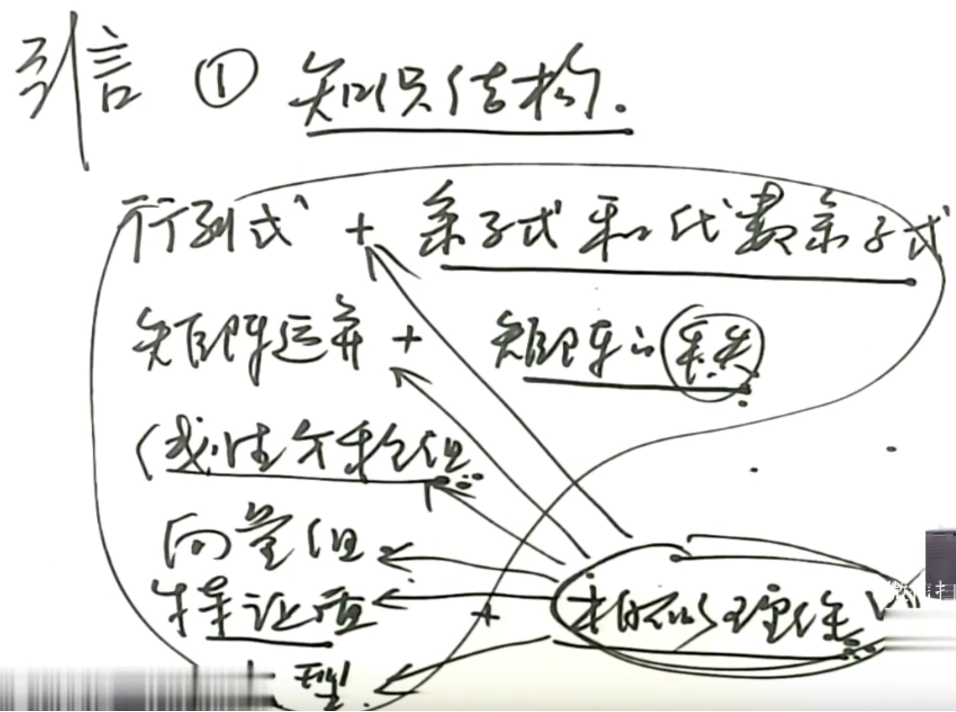 引言 ① 知识结构.
行列式 + 余子式和代数余子式
矩阵运算 + 矩阵的秩
线性方程组
向量组
特征值
相似理论
型